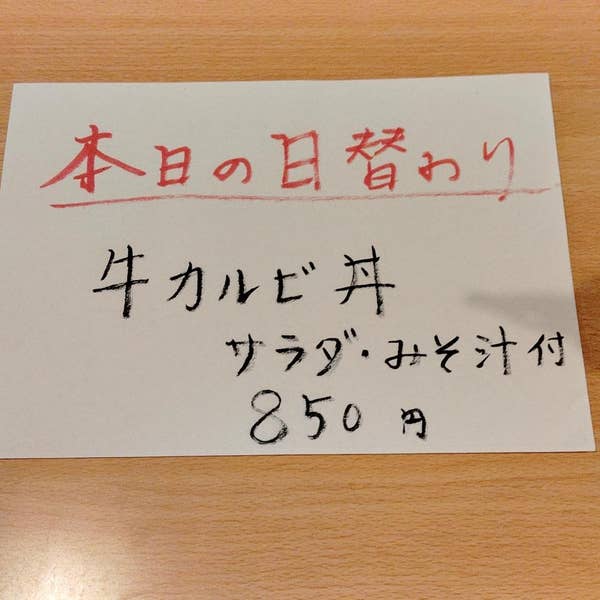 本日の日替わり
牛カルビ丼
サラダ・みそ汁付
850円